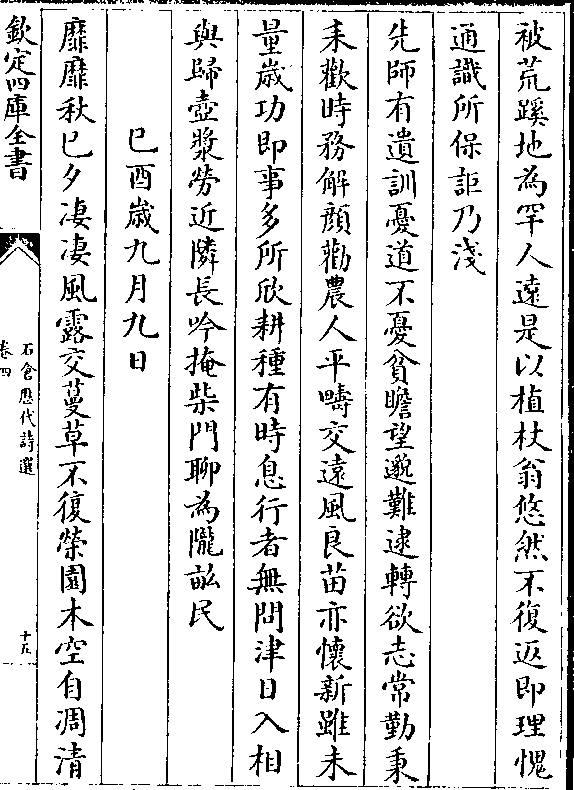 被荒蹊地為罕人遠是以植杖翁悠然不復返即理愧
通識所保詎乃淺
先師有遺訓憂道不憂貧瞻望邈難逮轉欲志常勤秉
耒歡時務解顔勸農人平疇交遠風良苗亦懷新雖未
量歲功即事多所欣耕種有時息行者無問津日入相
與歸壺漿勞近隣長吟掩柴門聊為隴畝民
已酉歲九月九日
靡靡秋已夕凄凄風露交蔓草不復榮園木空自凋清
欽定四庫全書
石倉歷代詩選
卷四
十五